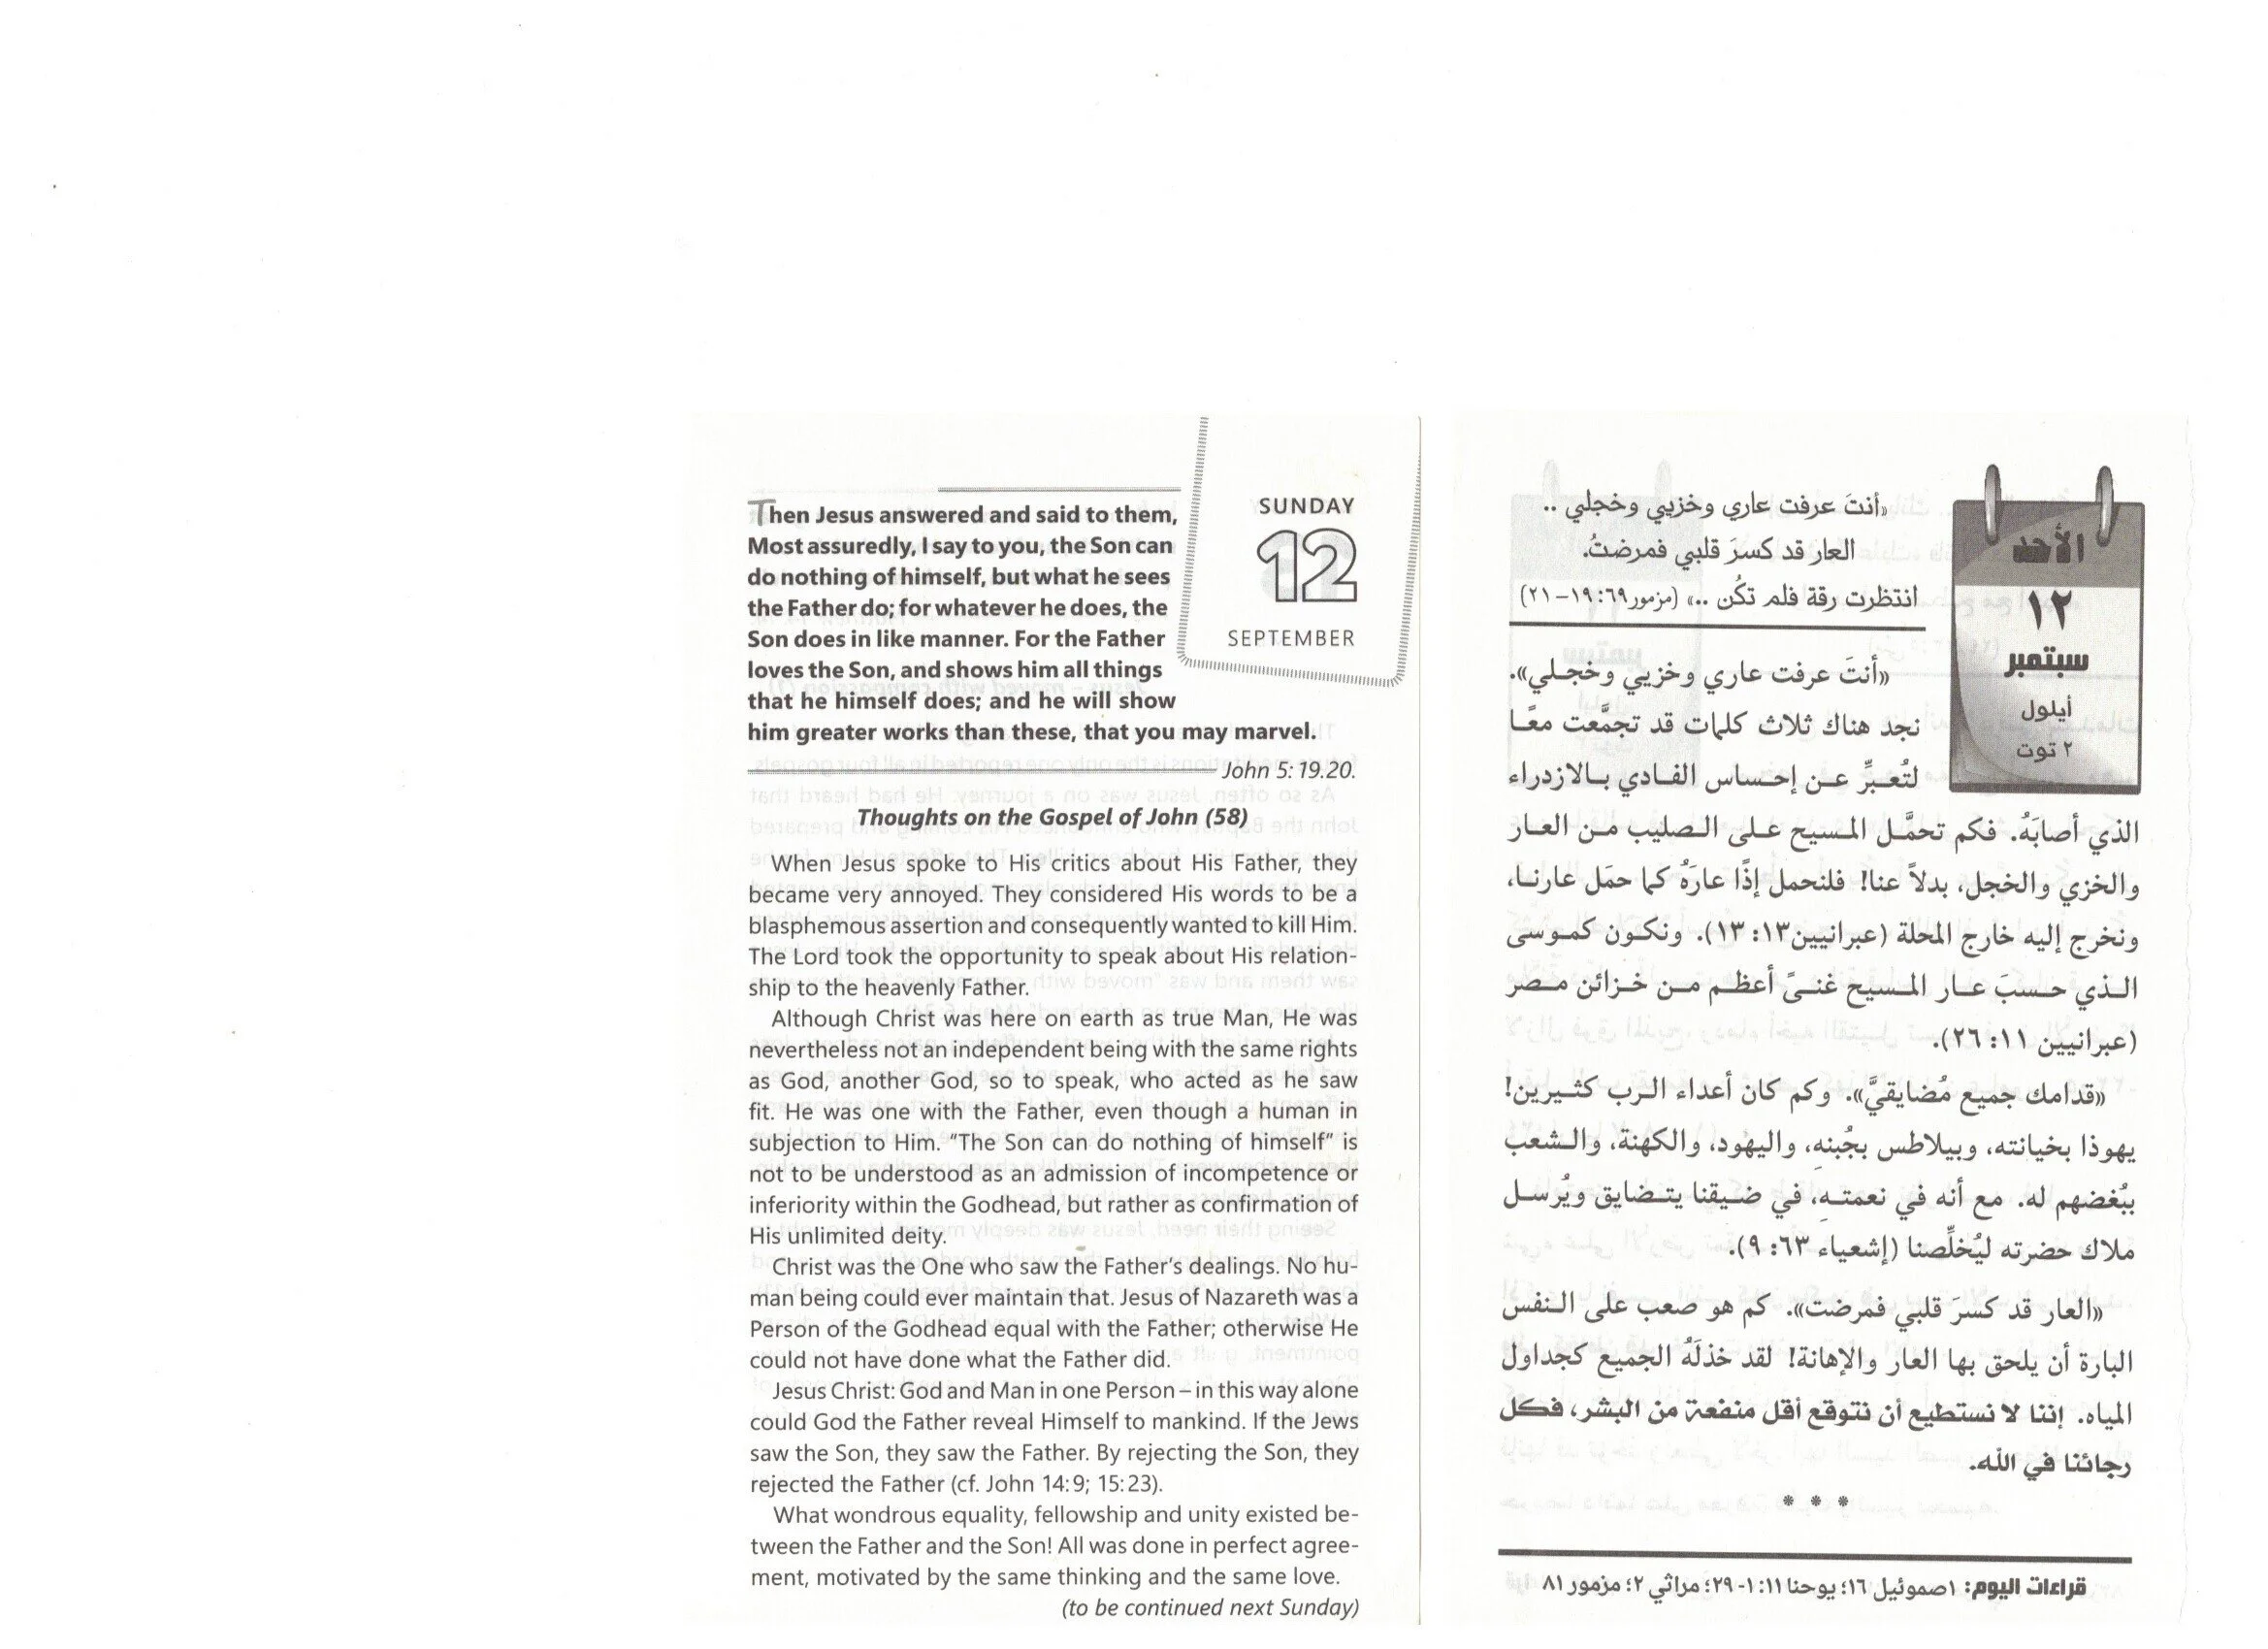 SUNDAY
12
SEPTEMBER
Then Jesus answered and said to them,
Most assuredly, I say to you, the Son can
do nothing of himself, but what he sees
the Father do; for whatever he does, the
Son does in like manner. For the Father
loves the Son, and shows him all things
that he himself does; and he will show
him greater works than these, that you may marvel.
John 5: 19.20.
Thoughts on the Gospel of John (58)
When Jesus spoke to His critics about His Father, they
became very annoyed. They considered His words to be a
blasphemous assertion and consequently wanted to kill Him.
The Lord took the opportunity to speak about His relation-
ship to the heavenly Father.
Although Christ was here on earth as true Man, He was
nevertheless not an independent being with the same rights
as God, another God, so to speak, who acted as he saw
fit. He was one with the Father, even though a human in
subjection to Him. “The Son can do nothing of himself” is
not to be understood as an admission of incompetence or
inferiority within the Godhead, but rather as confirmation of
His unlimited deity.
Christ was the One who saw the Father’s dealings. No hu-
man being could ever maintain that. Jesus of Nazareth was a
Person of the Godhead equal with the Father; otherwise He
could not have done what the Father did.
Jesus Christ: God and Man in one Person – in this way alone
could God the Father reveal Himself to mankind. If the Jews
saw the Son, they saw the Father. By rejecting the Son, they
rejected the Father (cf. John 14: 9; 15: 23).
What wondrous equality, fellowship and unity existed be-
tween the Father and the Son! All was done in perfect agree-
ment, motivated by the same thinking and the same love.
(to be continued next Sunday)
الأحد
١٢
سبتمبر
أيلول
٢ توت
«أنتَ عرفت عاري وخزيي وخجلي ..
العار قد كسرَ قلبي فمرضتُ.
انتظرت رقة فلم تكُن ..» (مزمور٦٩: ١٩–٢١)
«أنتَ عرفت عاري وخزيي وخجلي».
نجد هناك ثلاث كلمات قد تجمَّعت معًا
لتُعبرِّ عن إحساس الفادي بالازدراء
الذي أصابَهُ. فكم تحمَّل المسيح على الصليب من العار
والخزي والخجل، بدلاً عنا! فلنحمل إذًا عارَهُ كما حمَل عارنا،
ونخرج إليه خارج المحلة (عبرانيين١٣: ١٣). ونكون كموسى
الذي حسبَ عار المسيح غنىً أعظم من خزائن مصر
(عبرانيين ١١: ٢٦).
«قدامك جميع مُضايقيَّ». وكم كان أعداء الرب كثيرين!
يهوذا بخيانته، وبيلاطس بجُبنهِ، واليهود، والكهنة، والشعب
ببُغضهم له. مع أنه في نعمتهِ، في ضيقنا يتضايق ويُرسل
ملاك حضرته ليُخلِّصنا (إشعياء ٦٣: ٩).
«العار قد كسرَ قلبي فمرضت». كم هو صعب على النفس
البارة أن يلحق بها العار والإهانة! لقد خذلَهُ الجميع كجداول
المياه. إننا لا نستطيع أن نتوقع أقل منفعة من البشر، فكل
رجائنا في الله.
* * *
قراءات اليوم: ١صموئيل ١٦؛ يوحنا ١١: ١- ٢٩؛ مراثي ٢؛ مزمور ٨١